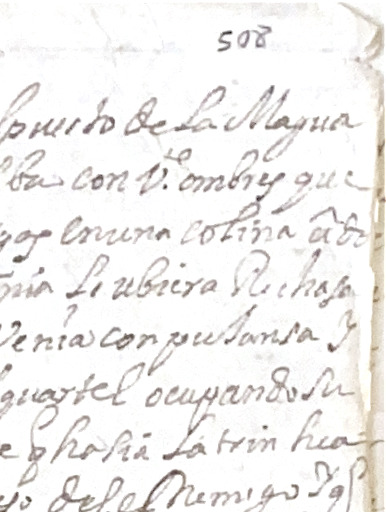 508
puesto de La Magua
ba con Vte ombres que
gos en una colina ado
nia Le ubiera Rechasa
Venia con pujansa Y
quartel ocupando su
e q hasia La trin hea
del enemigo Y q